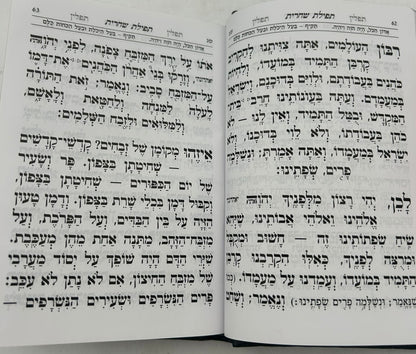 62 תפילת שחרית תפלין
אדון הכל, היה הוה ויהיה.
רִבּוֹן הָעוֹלָמִים, אַתָּה צִוִּיתָנוּ לְהַקְרִיב
קָרְבַּן הַתָּמִיד בְּמוֹעֲדוֹ, וְלִהְיוֹת
כֹּהֲנִים בַּעֲבוֹדָתָם, וּלְוִיִּם בְּדוּכָנָם,
וְיִשְׂרָאֵל בְּמַעֲמָדָם. וְעַתָּה בַּעֲוֹנוֹתֵינוּ חָרַב בֵּית
הַמִּקְדָּשׁ, וּבֻטַּל הַתָּמִיד, וְאֵין לָנוּ לֹא
כֹהֵן בַּעֲבוֹדָתוֹ, וְלֹא לֵוִי בְּדוּכָנוֹ, וְלֹא
יִשְׂרָאֵל בְּמַעֲמָדוֹ; וְאַתָּה אָמַרְתָּ: וּנְשַׁלְּמָה
פָרִים, שְׂפָתֵינוּ:
לָכֵן, יְהִי רָצוֹן מִלְּפָנֶיךָ יְהוָה
אֱלֹהֵינוּ וֵאלֹהֵי אֲבוֹתֵינוּ, שֶׁיְּהֵא
שִׂיחַ שִׂפְתוֹתֵינוּ זֶה — חָשׁוּב וּמְקֻבָּל
וּמְרֻצֶּה לְפָנֶיךָ, כְּאִלּוּ הִקְרַבְנוּ קָרְבַּן
הַתָּמִיד בְּמוֹעֲדוֹ, וְעָמַדְנוּ עַל מַעֲמָדוֹ.
שֶׁנֶּאֱמַר, וּנְשַׁלְּמָה פָרִים שְׂפָתֵינוּ: וְנֶאֱמַר; וְשָׁחַט
תפלין תפילת שחרית 63
התקיף – בעל היכלת ובעל הכחות כלם
אֹתוֹ עַל יֶרֶךְ הַמִּזְבֵּחַ צָפֹנָה, לִפְנֵי יְהוָה,
וְזָרְקוּ בְּנֵי אַהֲרֹן הַכֹּהֲנִים, אֶת־דָּמוֹ
עַל־הַמִּזְבֵּחַ סָבִיב: וְנֶאֱמַר; זֹאת הַתּוֹרָה
לָעֹלָה לַמִּנְחָה וְלַחַטָּאת וְלָאָשָׁם,
וְלַמִּלּוּאִים וּלְזֶבַח הַשְּׁלָמִים:
אֵיזֶהוּ מְקוֹמָן שֶׁל זְבָחִים? קָדְשֵׁי קָדָשִׁים
— שְׁחִיטָתָן בַּצָּפוֹן. פַּר וְשָׂעִיר
שֶׁל יוֹם הַכִּפּוּרִים — שְׁחִיטָתָן בַּצָּפוֹן,
וְקִבּוּל דָּמָן בִּכְלֵי שָׁרֵת בַּצָּפוֹן. וְדָמָן טָעוּן
הַזָּיָה עַל בֵּין הַבַּדִּים, וְעַל הַפָּרֹכֶת, וְעַל
מִזְבַּח־הַזָּהָב. מַתָּנָה אַחַת מֵהֶן מְעַכָּבֶת.
שְׁיָרֵי הַדָּם הָיָה שׁוֹפֵךְ עַל יְסוֹד מַעֲרָבִי
שֶׁל מִזְבֵּחַ הַחִיצוֹן, אִם לֹא נָתַן לֹא עִכֵּב:
פָּרִים הַנִּשְׂרָפִים וּשְׂעִירִים הַנִּשְׂרָפִים —